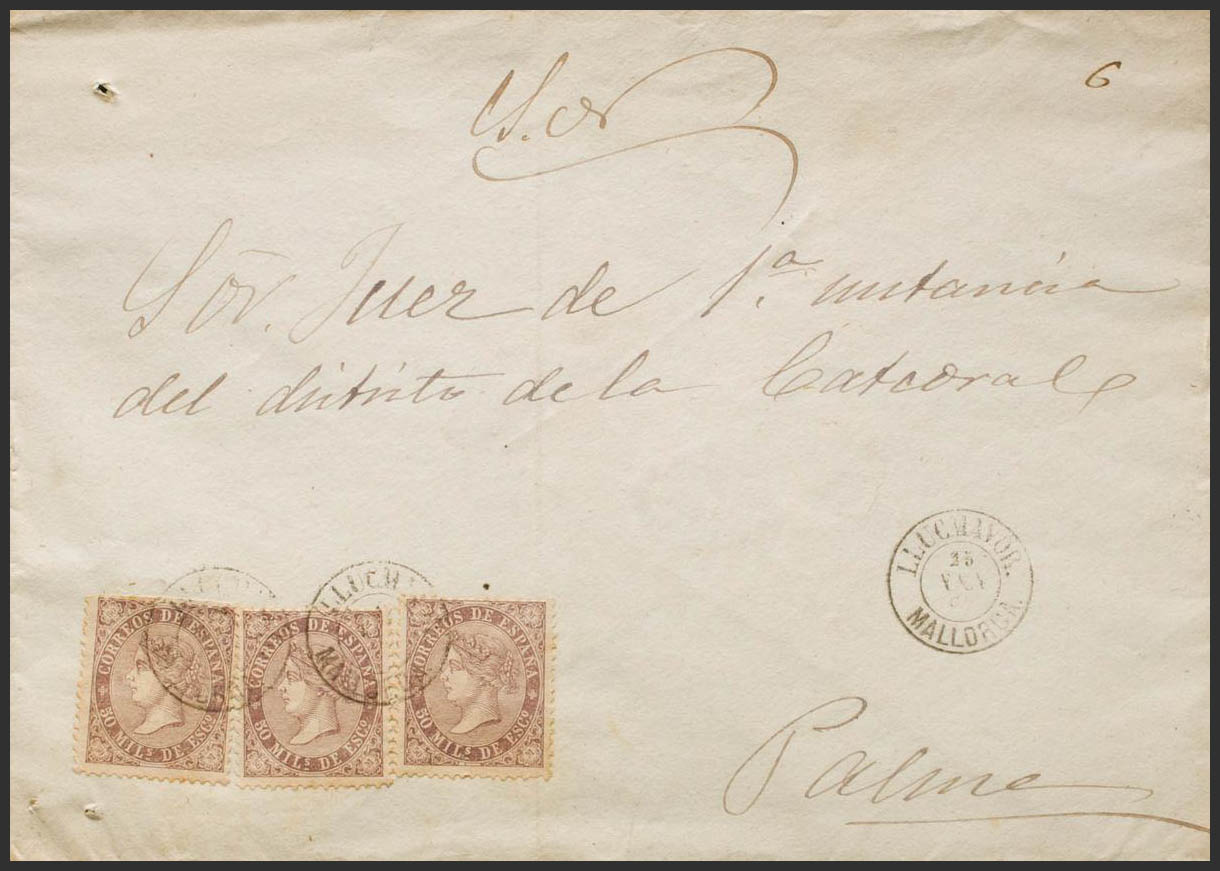 6
S.or
Sõr. Juez de 1.ª instancia
del distrito de la Catedral
LLUCMAYOR.
25
MALLORCA.
LLUCMA
MAL
CORREOS DE ESPAÑA
50 MIL.S DE ESCO
CORREOS DE ESPAÑA
50 MIL.S DE ESCO
CORREOS DE ESPAÑA
50 MIL.S DE ESCO
Palma